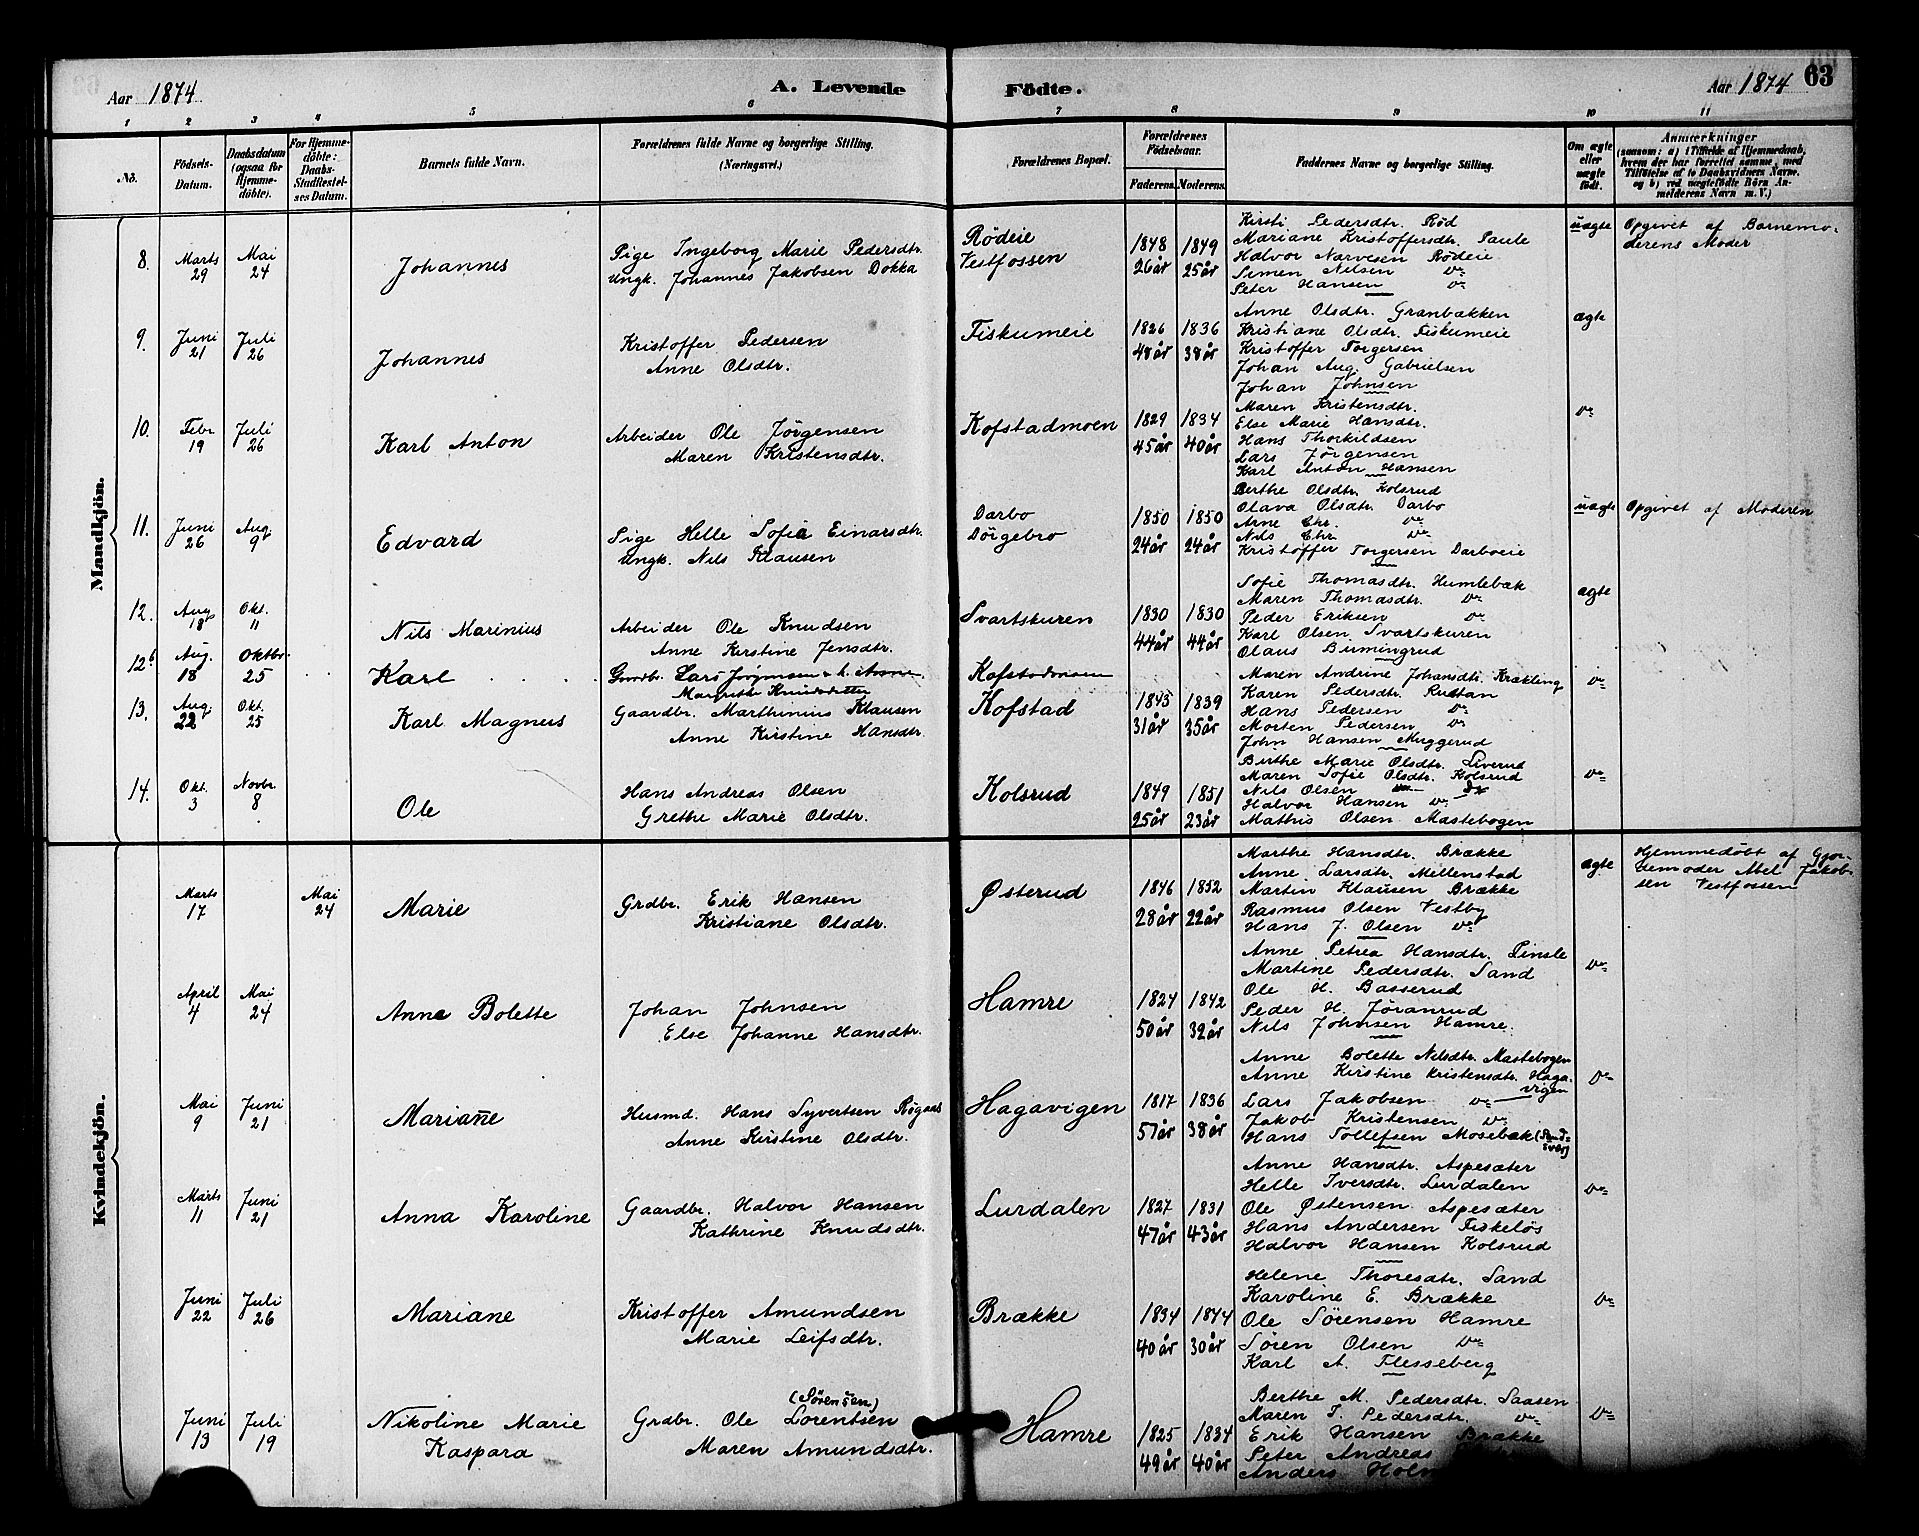 Aar 1874. A. Levende Födte. Aar 1874 63
1 2 3 4 5 6 7 8 9 10 11
No. Födsels-Datum. Daabsdatum (ogsaa for Hjemme-döbte). For Hjemme-döbte: Daabs-Stadfestel-ses Datum. Barnets fulde Navn. Forældrenes fulde Navne og borgerlige Stilling. (Næringsvei.) Forældrenes Bopæl. Forældrenes Födselsaar. Faderens. Moderens. Faddernes Navne og borgerlige Stilling. Om ægte eller uægte födt. Anmærkninger (saasom: a) i Tilfælde af Hjemmedaab, hvem der har forrettet samme, med Tilföielse af to Daabsvidners Navne, og b) ved uægtefödte Börn Anmelderens Navn m. V.)
Mandkjön.
8. Marts 29 Mai 24 Johannes
Pige Ingeborg Marie Pedersdtr.
Ungk. Johannes Jakobsen Dokka
Rødeie
Vestfossen
1848 1849
26 år 25 år
Kirsti Pedersdtr. Rød
Mariane Kristoffersdtr. Paule
Halvor Narvesen Rødeie
Simen Nilsen do
Peter Hansen do
uægte Opgivet af Barnemo-
derens Moder
9. Juni 21 Juli 26 Johannes
Kristoffer Pedersen
Anne Olsdtr.
Fiskumeie
1826 1836
48 år 38 år
Anne Olsdtr. Granbakken
Kristiane Olsdtr. Fiskumeie
Kristoffer Torgersen
Johan Aug. Gabrielsen
Johan Johnsen
ægte
10. Febr 19 Juli 26 Karl Anton
Arbeider Ole Jørgensen
Maren Kristensdtr.
Kofstadmoen
1829 1834
45 år 40 år
Maren Kristensdtr.
Else Marie Hansdtr.
Hans Thorkildsen
Lars Jørgensen
Karl Anton Hansen
do
11. Juni 26 Aug. 9 Edvard
Pige Helle Sofie Einarsdtr.
Ungk. Nils Klausen
Darbo
Dørgebro
1850 1850
24 år 24 år
Berthe Olsdtr. Kolsrud
Olava Olsdtr. Darbo
Arne Chr. do
Nils Chr. do
Kristoffer Torgersen Darboeie
uægte Opgivet af Moderen
12. Aug 18 Okt. 11 Nils Marinius
Arbeider Ole Knudsen
Anne Kirstine Jensdtr.
Svartskuren
1830 1830
44 år 44 år
Sofie Thomasdtr. Humlebæk
Maren Thomasdtr. do
Peder Eriksen do
Karl Olsen Svartskuren
Olaus Burmingrud
ægte
12b Aug. 18 Oktbr. 25 Karl
Gaardbr. Lars Jørgensen & h. Anne
Margrethe Knudsdatter
Kofstadmoen
13. Aug. 22 Okt. 25 Karl Magnus
Gaardbr. Marthinius Klausen
Anne Kirstine Hansdtr.
Kofstad
1843 1839
31 år 35 år
Maren Andrine Johansdtr. Krækling
Karen Pedersdtr. Rustan
Hans Pedersen do
Morten Pedersen do
John Hansen Muggerud
do
14. Okt. 3 Novbr. 8 Ole
Hans Andreas Olsen
Grethe Marie Olsdtr.
Kolsrud
1849 1851
25 år 23 år
Birthe Marie Olsdtr. Liverud
Maren Sofie Olsdtr. Kolsrud
Nils Olsen do
Halvor Hansen do
Mathis Olsen Mastebogen
do
Kvindekjön.
Marts 17 Mai 24 Marie
Grdbr. Erik Hansen
Kristiane Olsdtr.
Østerud
1846 1852
28 år 22 år
Marthe Hansdtr. Brække
Anne Larsdtr. Millenstad
Martin Klausen Brække
Rasmus Olsen Vestby
Hans J. Olsen do
ægte Hjemmedøbt af Gjor-
demoder Abel Jakob-
sen Vestfossen
April 4 Mai 24 Anne Bolette
Johan Johnsen
Else Johanne Hansdtr.
Hamre
1824 1842
50 år 32 år
Anne Petrea Hansdtr. Pinsle
Martine Pedersdtr. Sand
Ole H. Basserud
Peder H. Jøranrud
Nils Johnsen Hamre
do
Mai 9 Juni 21 Mariane
Husmd. Hans Syvertsen Røgaas
Anne Kirstine Olsdtr.
Hagavigen
1817 1836
57 år 38 år
Anne Bolette Nilsdtr. Mastebogen
Anne Kirstine Kristensdtr. Haga-
vigen
Lars Jakobsen do
Jakob Kristensen do
Hans Tollefsen Mosebæk (Sand-
svær)
do
Marts 11 Juni 21 Anna Karoline
Gaardbr. Halvor Hansen
Kathrine Knudsdtr.
Lurdalen
1827 1831
47 år 43 år
Anne Hansdtr. Aspesæter
Helle Iversdtr. Lurdalen
Ole Østensen Aspesæter
Hans Andersen Fiskeløs
Halvor Hansen Kolsrud
do
Juni 22 Juli 26 Mariane
Kristoffer Amundsen
Marie Leifsdtr.
Brække
1834 1844
40 år 30 år
Helene Thoresdtr. Sand
Karoline E. Brække
Ole Sørensen Hamre
Søren Olsen do
Karl A. Flesseberg
do
Juni 13 Juli 19 Nikoline Marie
Kaspara
(Sørensen)
Grdbr. Ole Lorentsen
Maren Amundsdtr.
Hamre
1825 1834
49 år 40 år
Berthe M. Pedersdtr. Saasen
Maren T. Pedersdtr. do
Erik Hansen Brække
Peter Andreas
Anders Holm
do